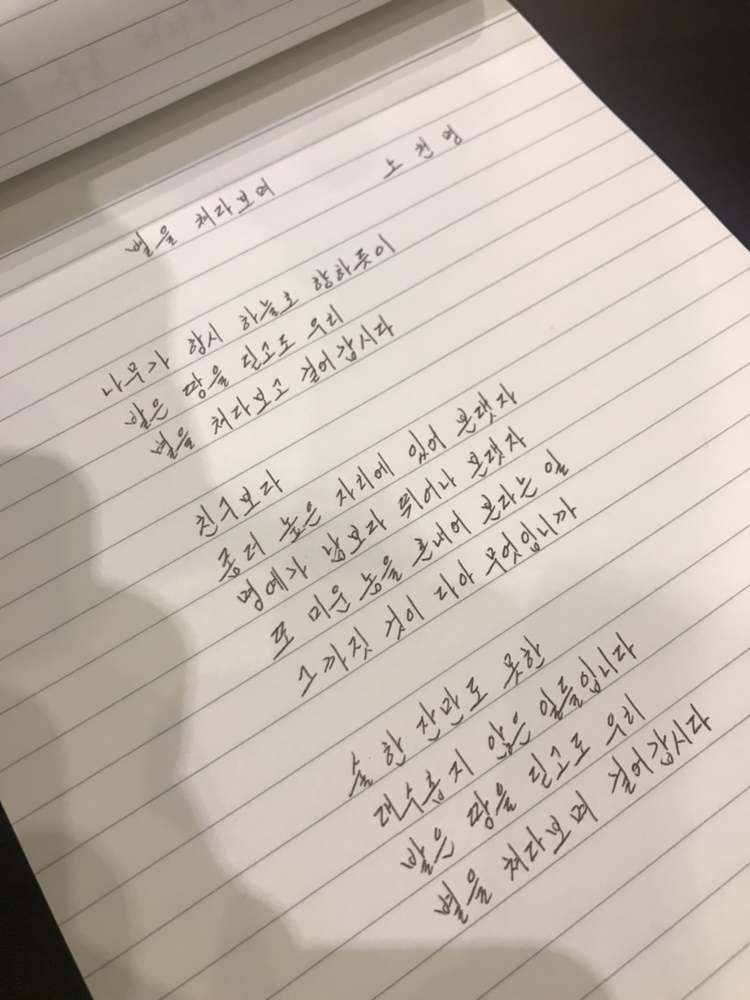 별을 쳐다보며 노천명
나무가 항시 하늘로 향하듯이
발은 땅을 딛고도 우리
별을 쳐다보고 걸어갑시다
친구보다
좀더 높은 자리에 있어 본댓자
명예가 남보다 뛰어나 본댓자
또 미운 놈을 혼내어 본다는 일
그까짓 것이 다아 무엇입니까
술 한 잔만도 못한
대수롭지 않은 일들입니다
발은 땅을 딛고도 우리
별을 쳐다보며 걸어갑시다